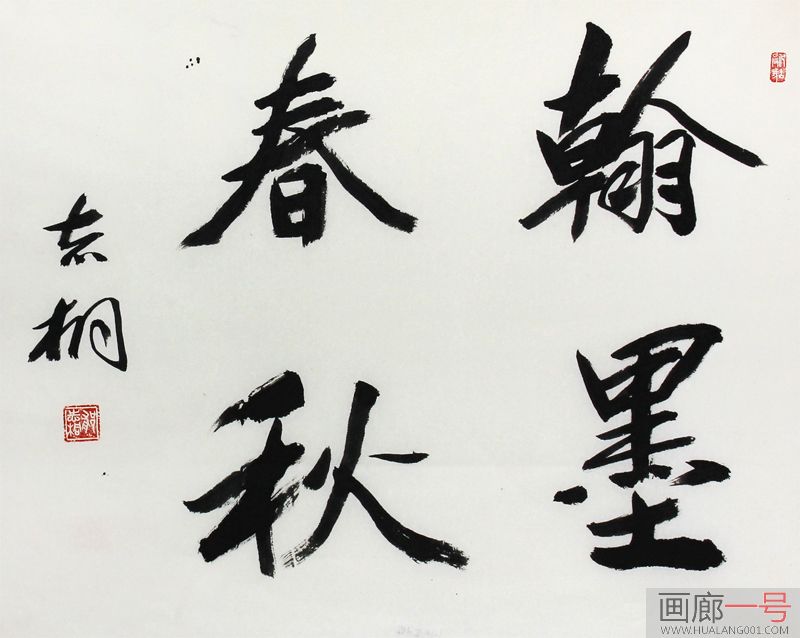 翰墨
春秋
志桐
画廊一号
WWW.HUALANG001.COM